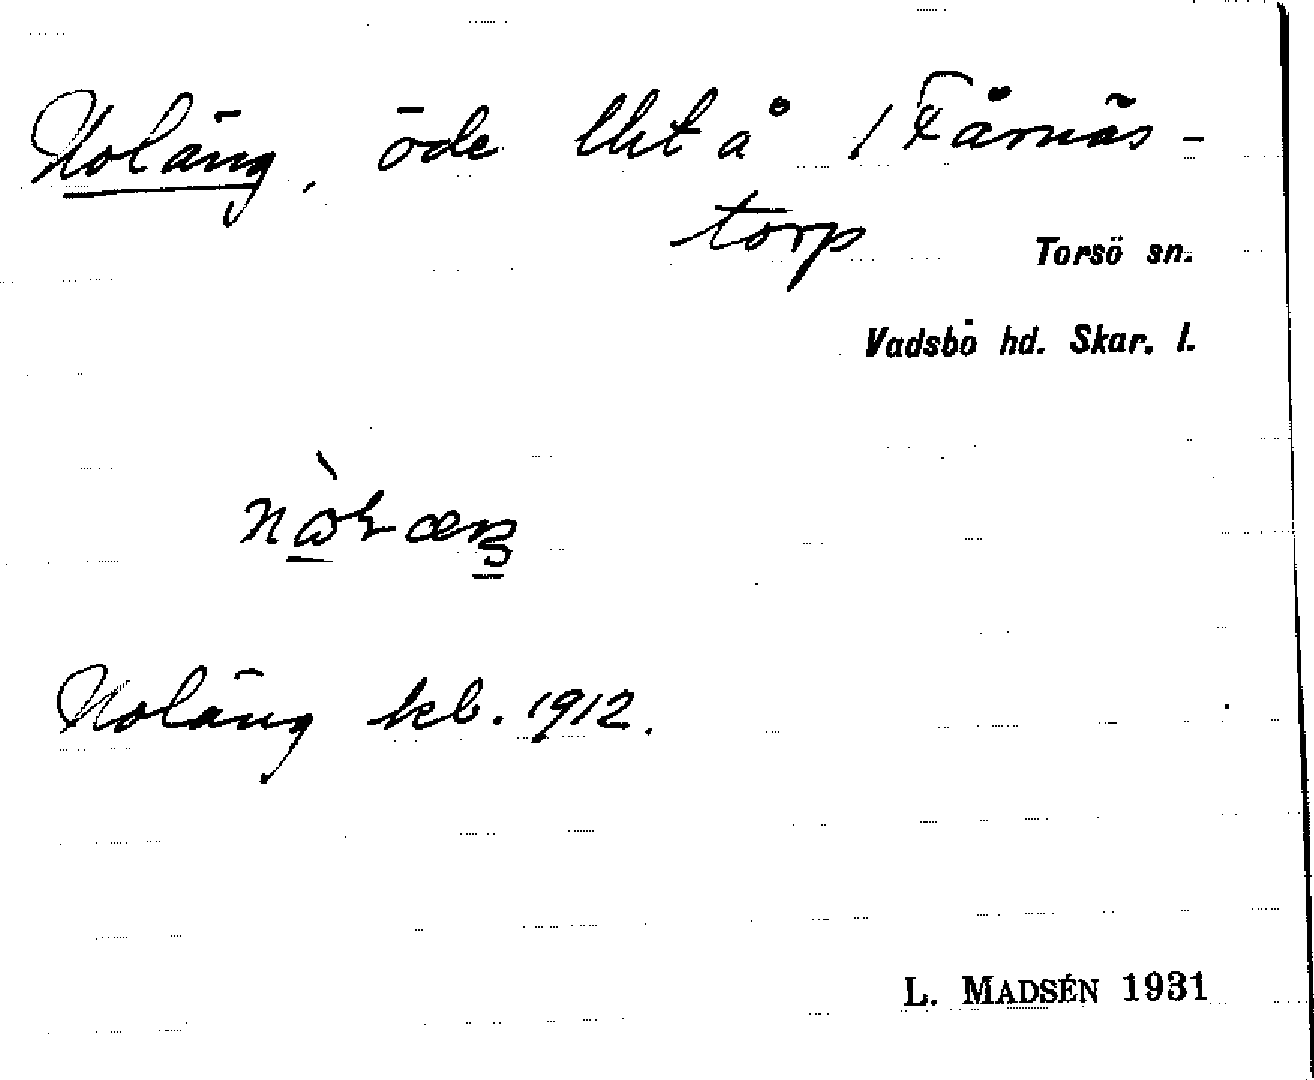 Noläng, öde lht å 1 Fårnäs-
torp
Torsö sn.
Vadsbo hd. Skar. l.
Noläng kb. 1912.
L. MADSÉN 1931